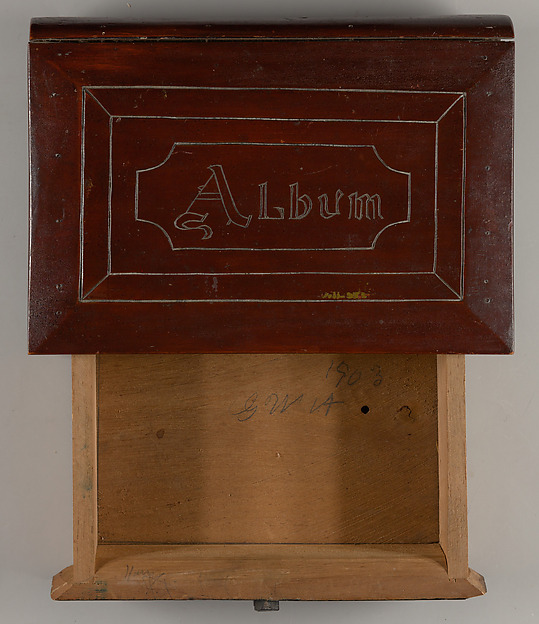 Album
1903
GWA